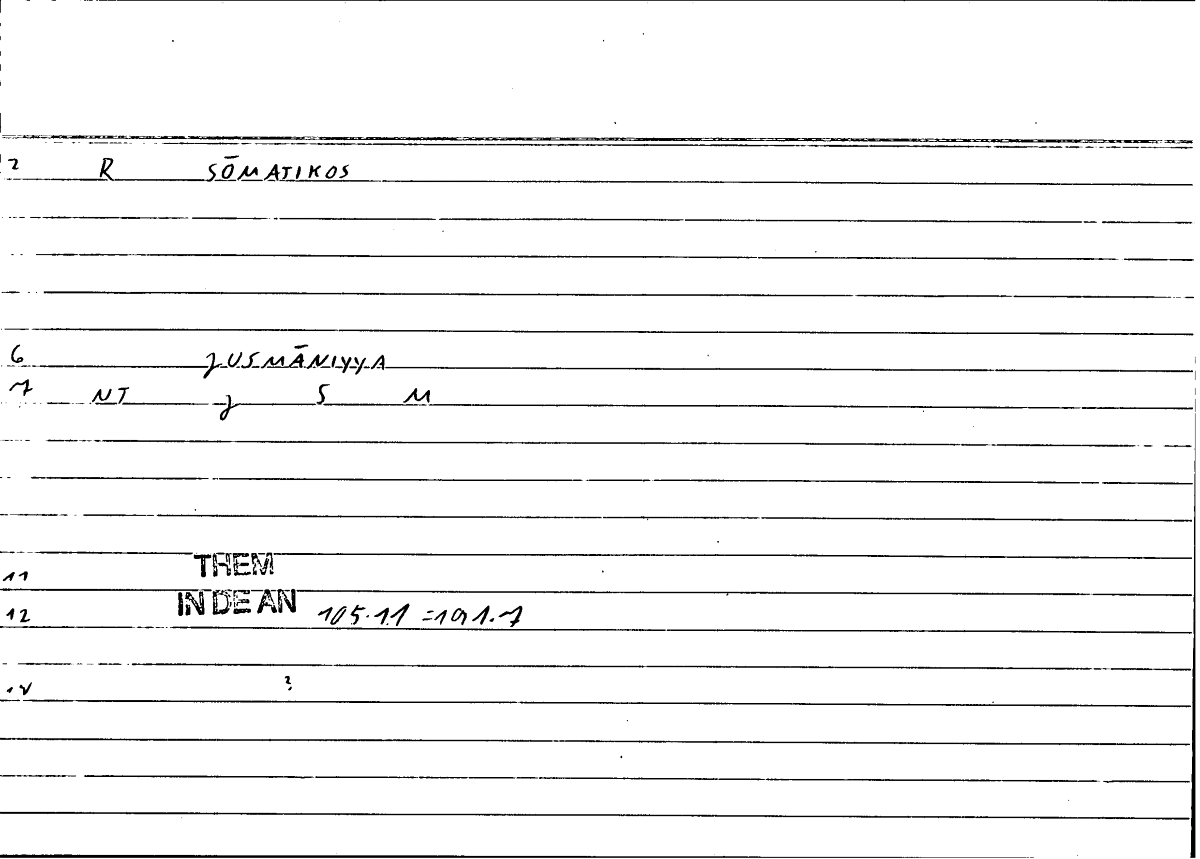 2 R SŌMATIKOS
6 ʒUSMĀNIYYA
7 NT ʒ S M
11 THEM
12 IN DE AN 105.11 =191.7
?